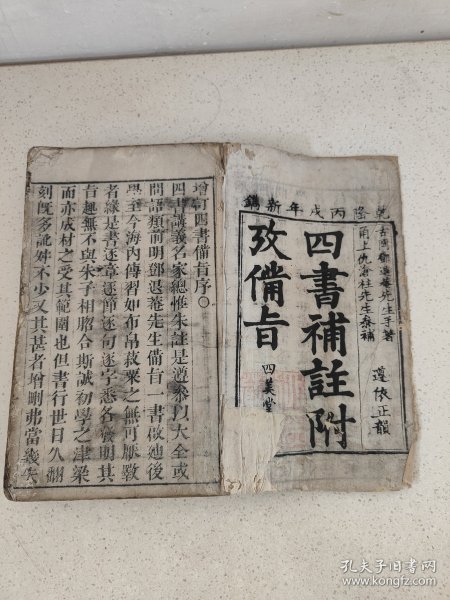 乾隆丙戌年新鐫
古岡鄧退菴先生手著
甬上仇滄柱先生參補
遵依正韻
四書補註附
攷備旨
四美堂
增訂四書備旨序
四書講義名家總惟朱註是遵參以大全或
問語類前明鄧退菴先生備旨一書啟迪後
學至今海內傳習如布帛菽粟之無可厭斁
者緣是書逐章逐節逐句逐字悉為發明其
旨趣無不與朱子相脗合斯誠初學之津梁
而亦成材之受其範圍也但書行世日久翻
刻既多訛舛不少又其甚者增刪弗當幾失
孔夫子旧书网
www.kongfz.com